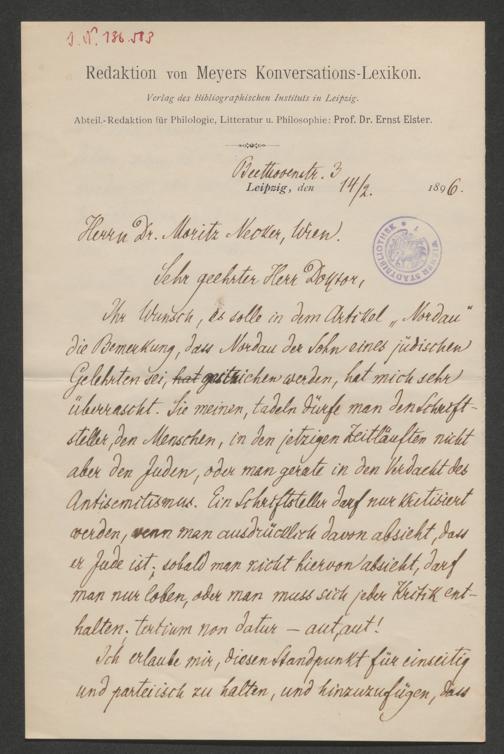 J. N. 136.583
Redaktion von Meyers Konversations-Lexikon.
Verlag des Bibliographischen Instituts in Leipzig.
Abteil.-Redaktion für Philologie, Litteratur u. Philosophie: Prof. Dr. Ernst Elster.
Beethovenstr. 3
Leipzig, den 14/2. 1896.
WIENER STADTBIBLIOTHEK
Herrn Dr. Moritz Necker, Wien.
Sehr geehrter Herr Doktor,
Ihr Wunsch, es solle in dem Artikel „Nordau"
die Bemerkung, dass Nordau der Sohn eines jüdischen
Gelehrten sei, hat gestrichen werden, hat mich sehr
überrascht. Sie meinen, tadeln dürfe man den Schrift-
steller, den Menschen, in den jetzigen Zeitläuften nicht
aber den Juden, oder man gerate in den Verdacht des
Antisemitismus. Ein Schriftsteller darf nur kritisiert
werden, wenn man ausdrücklich davon absieht, dass
er Jude ist; sobald man nicht hiervon absieht, darf
man nur loben, oder man muss sich jeder Kritik ent-
halten; tertium non datur – aut, aut!
Ich erlaube mir, diesen Standpunkt für einseitig
und parteiisch zu halten, und hinzuzufügen, dass